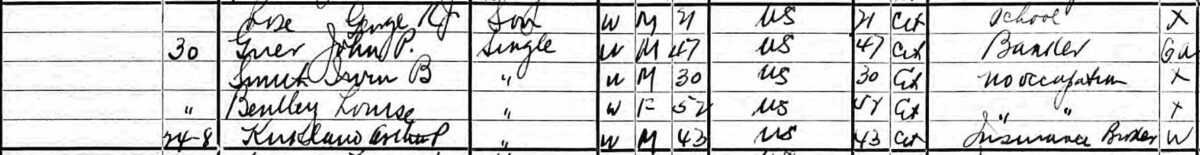 Rose George R Jr Son W M 21 US 21 Cit School X
30 Grier John P. Single W M 47 US 47 Cit Banker Ga
Smith Irvin B " W M 30 US 30 Cit no occupation X
" Bentley Louise " W F 52 US Cit " " X
74-8 Kirkland Arthur P " W M 43 US 43 Cit Insurance Broker W